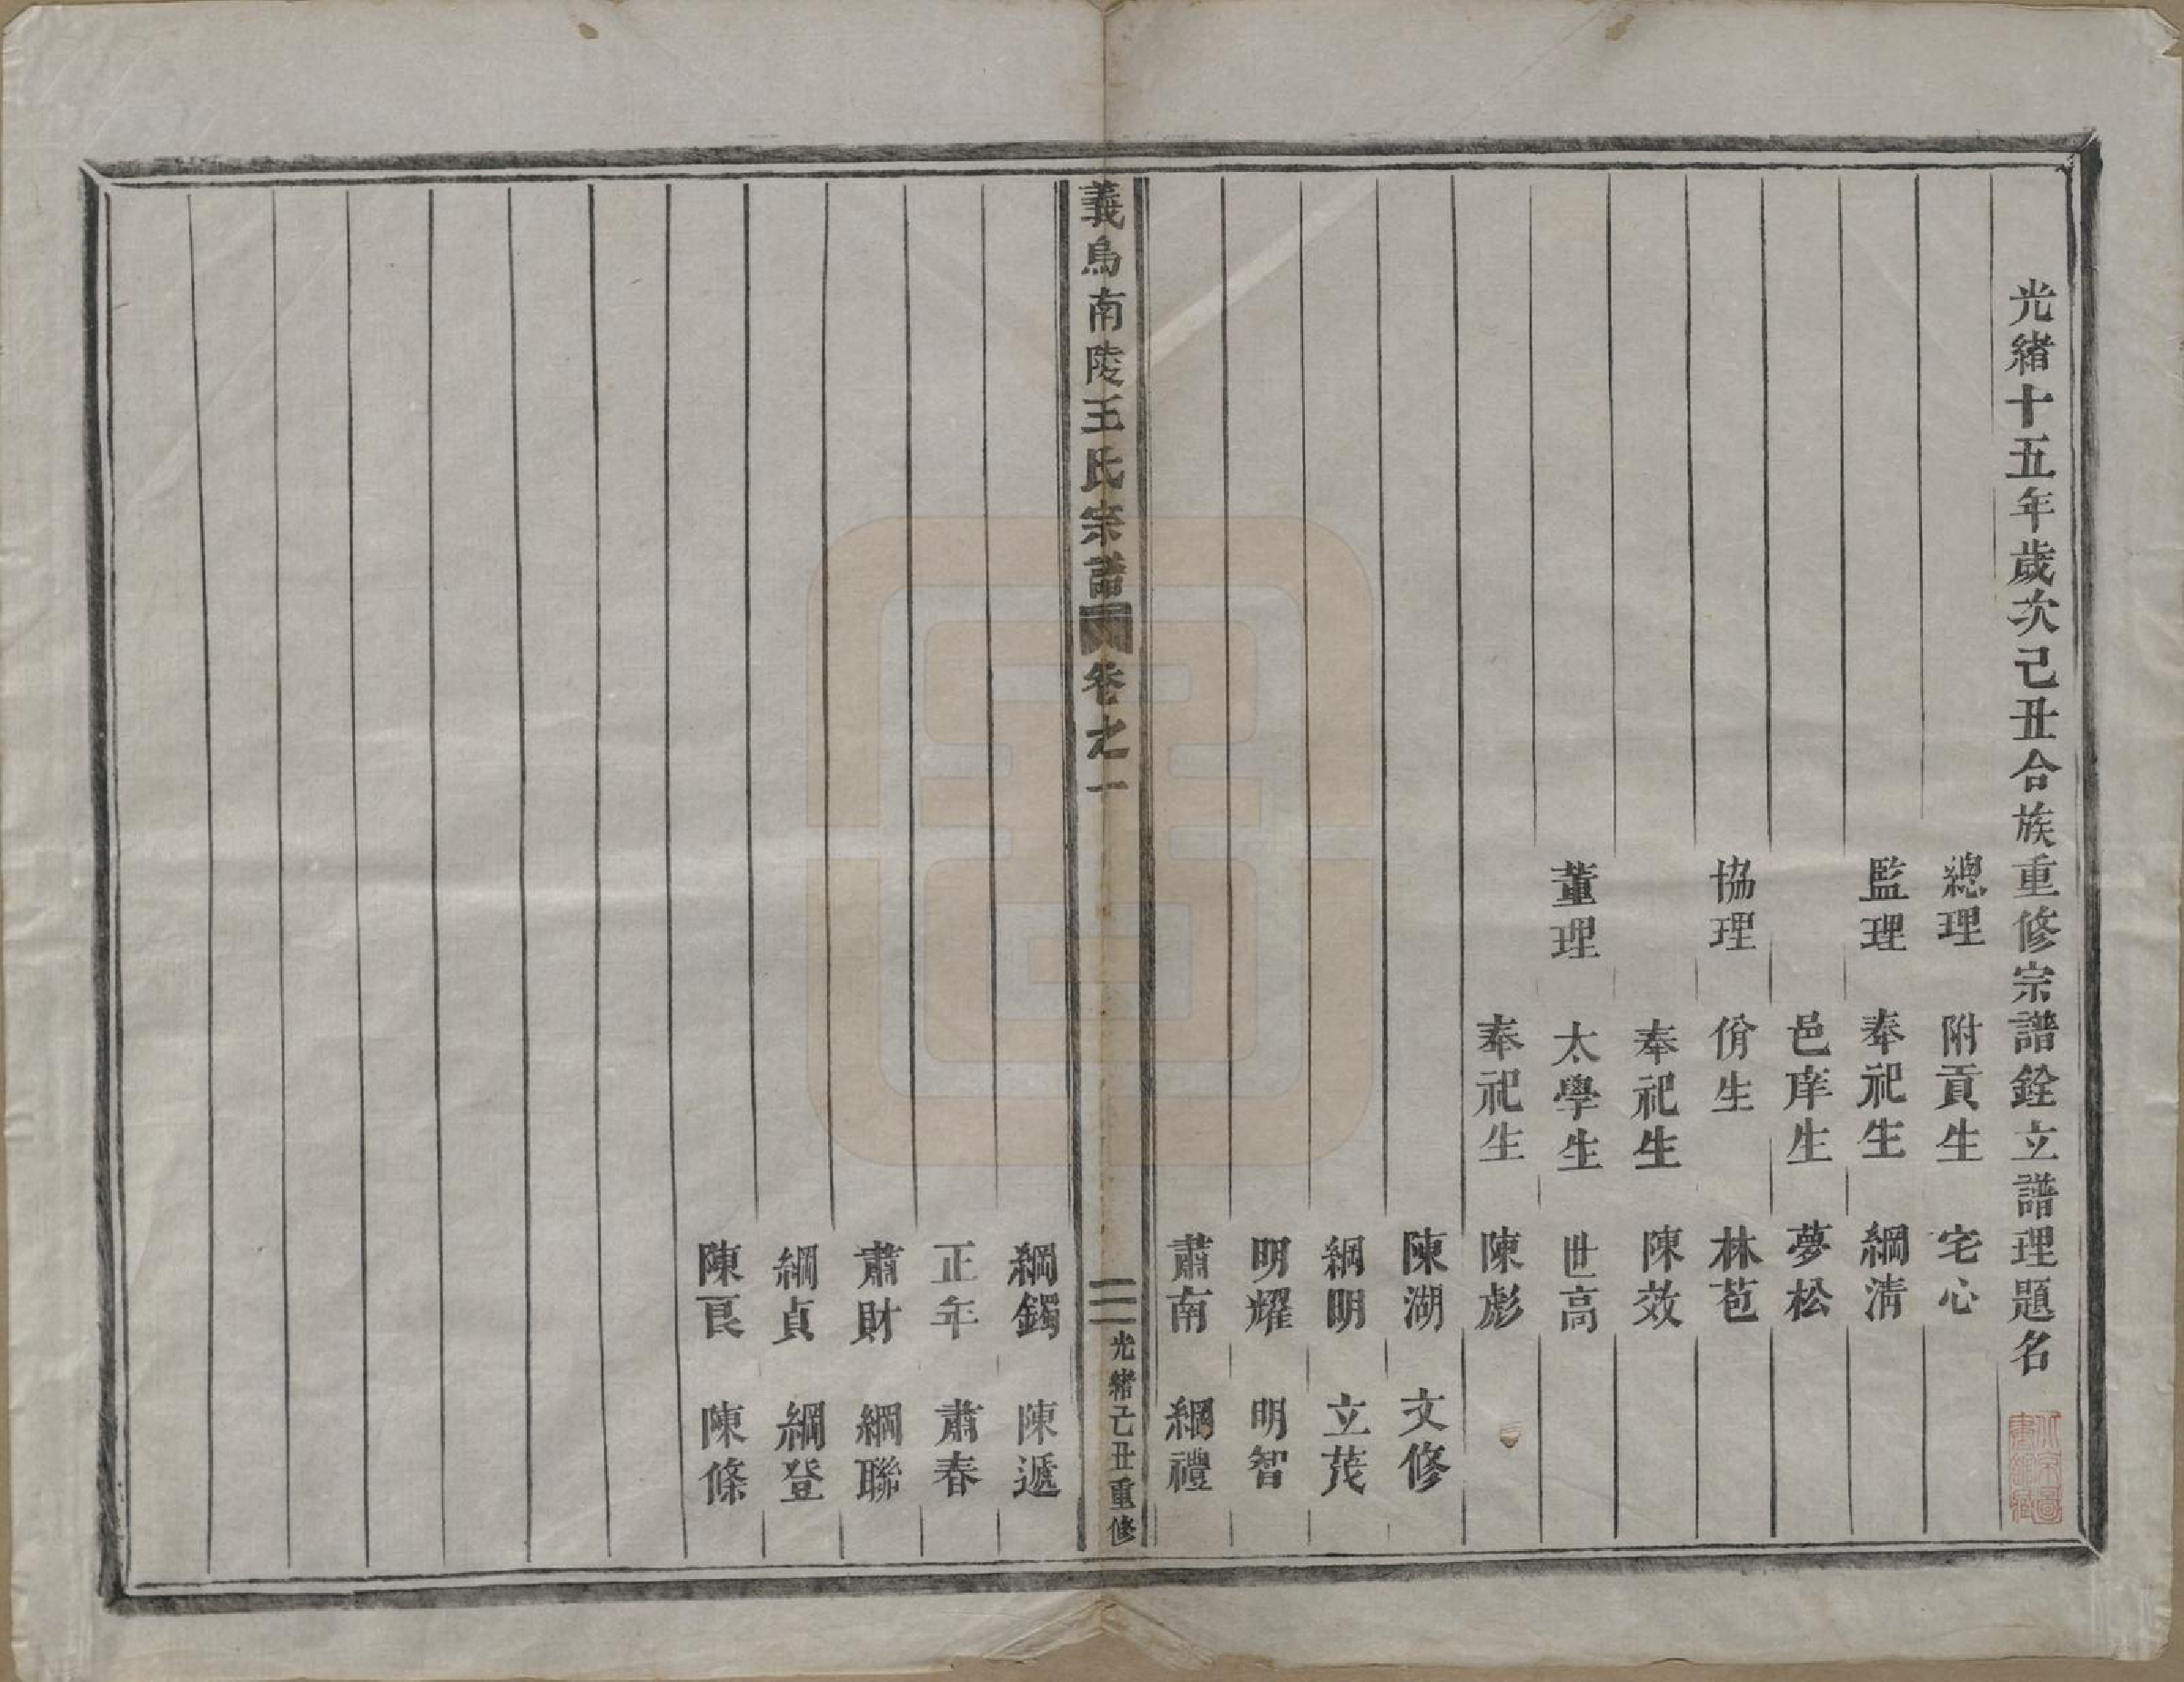 光緒十五年歲次己丑合族重修宗譜銓立譜理題名
總理 附貢生 宅心
監理 奉祀生 綱淸
邑庠生 夢松
協理 佾生 林苞
奉祀生 陳效
董理 太學生 世高
奉祀生 陳彪
陳湖 文修
綱明 立茂
明耀 明智
肅南 綱禮
義烏南陵王氏宗譜 卷之一 三 光緒己丑重修
綱鐲 陳遞
正年 肅春
肅財 綱聯
綱貞 綱登
陳良 陳條